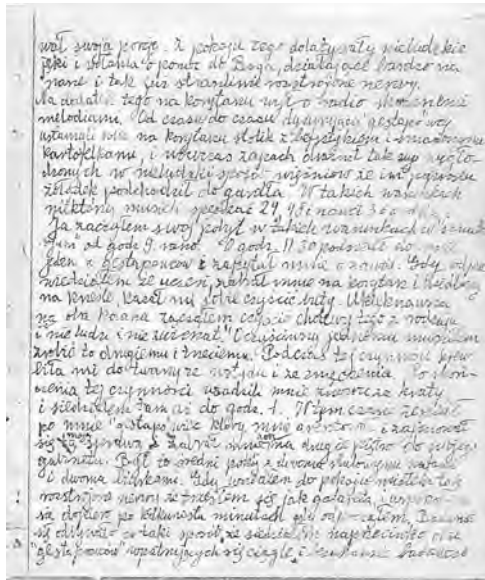 wał swoją porcję. Z pokoju tego dolatywały nieludzkie
jęki i wołania o pomoc do Boga, działające bardzo na
nane i tak już straszliwie rozstrojone nerwy.
Na dodatek tego na korytarzu wył radio skocznemi
melodiami. Od czasu do czasu dyżurujący gestapowcy
ustawiali na korytarzu stolik z befsztykiem i smażonemi
kartofelkami, i wówczas zapach drażnił tak
w nieludzki sposób więźniów że im
żołądek podchodził do gardła. W takich warunkach
niektórzy musieli spędzać 24, 48 i nawet
Ja zacząłem swój pobyt w takich warunkach w
od godz 9 rano. O godz. 11 30 podszedł do mnie
jeden z gestapowców i zapytał mnie o zawód. Gdy
wiedziałem że uczeń, zabrał mnie na korytarz i siedząc
na krześle, kazał mi sobie czyścić buty. Uklęknąwszy
na oba kolana zacząłem czyścić cholewy tego
i nie ludzi i nie zwierząt. Oczyściwszy jednemu musiałem
zrobić to drugiemu i trzeciemu. Podczas tej czynności krew
biła mi do twarzy ze wstydu i ze zmęczenia. Po skoń-
czeniu tej czynności wsadzili mnie za kraty
i siedziałem tam aż do godz. 1. W tym czasie
po mnie gestapowiec który mnie aresztował i zajmował
się moją sprawą i zabrał mnie na drugie piętro do swojego
gabinetu. Był to średni pokój z dwoma
i dwoma biurkami. Gdy wszedłem do pokoju miałem tak
rozstrojone nerwy że trząsłem się jak galareta,
się dopiero po kilkunastu minutach gdy
się odbywało w taki sposób, że siedziałem naprzeciwko
gestapowców wypełniających się ciągle i